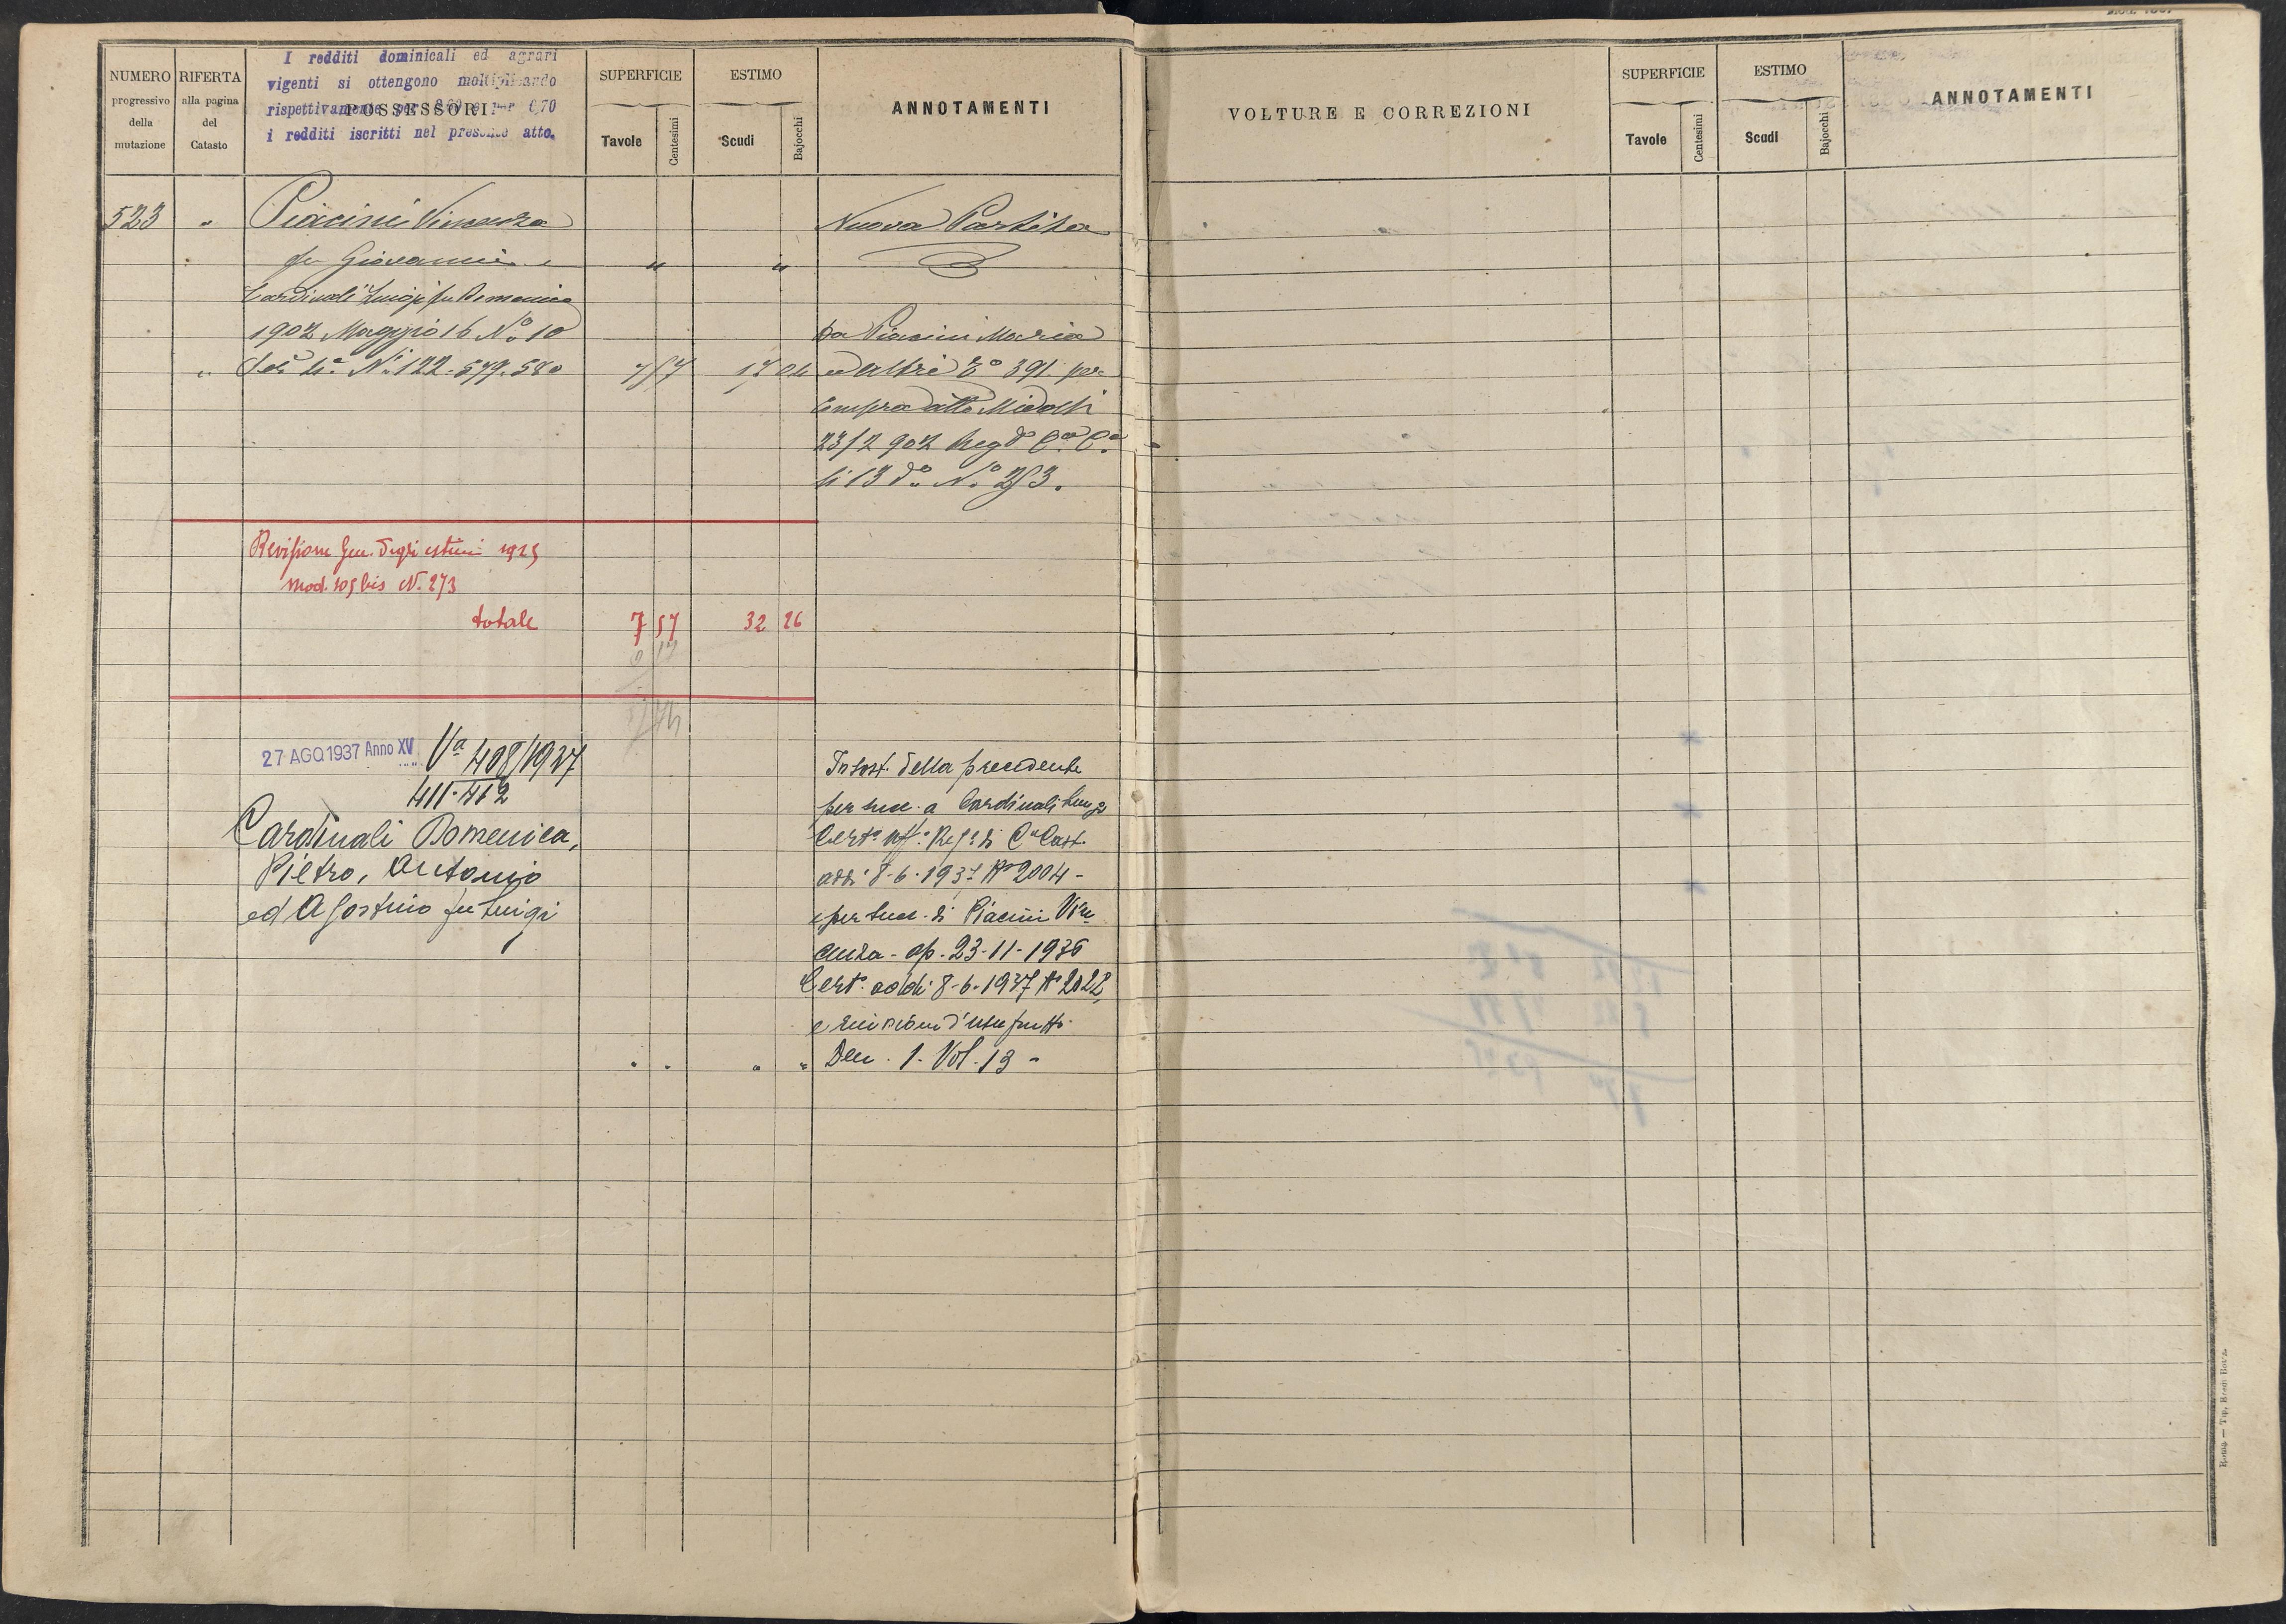 NUMERO progressivo della mutazione
RIFERTA alla pagina del Catasto
I redditi dominicali ed agrari
vigenti si ottengono moltiplicando
rispettivamente per per 6,70
i redditi iscritti nel presente atto.
POSSESSORI
SUPERFICIE
Tavole
Centesimi
ESTIMO
Scudi
Bajocchi
ANNOTAMENTI
VOLTURE E CORREZIONI
SUPERFICIE
Tavole
Centesimi
ESTIMO
Scudi
Bajocchi
ANNOTAMENTI
523 " Piacini Vincenza Nuova Partita
fu Giovanni e " "
Cardinali Luigi fu Domenico
1902 Maggio 16 N.° 10 Da Piacini Maria
" Sez 4ª Ni 122-579-580 7 57 17 04 ed altri 391 per
Compra atto
23/2 902 Reg°
li 13 d° N.° 253.
Revisione Gen. degli estimi 1925
mod. 105 bis N. 273
totale 7 57 32 26
27 AGO 1937 Anno XV
Va 408/1937
411-412
Cardinali Domenica,
Pietro, Antonio
ed Agostino fu Luigi
In sost. della precedente
per succ. a Cardinali Luigi
Cert° uff° Reg° di Cª Cast.
addì 8-6-1937 N° 2004 -
e per succ. di Piacini Vin
cenza - ap. 23-11-1936
Cert° addì 8-6-1937 N° 2022
e riunione d'usufrutto.
" " " " Den. 1. Vol. 13 -
Roma — Tip.